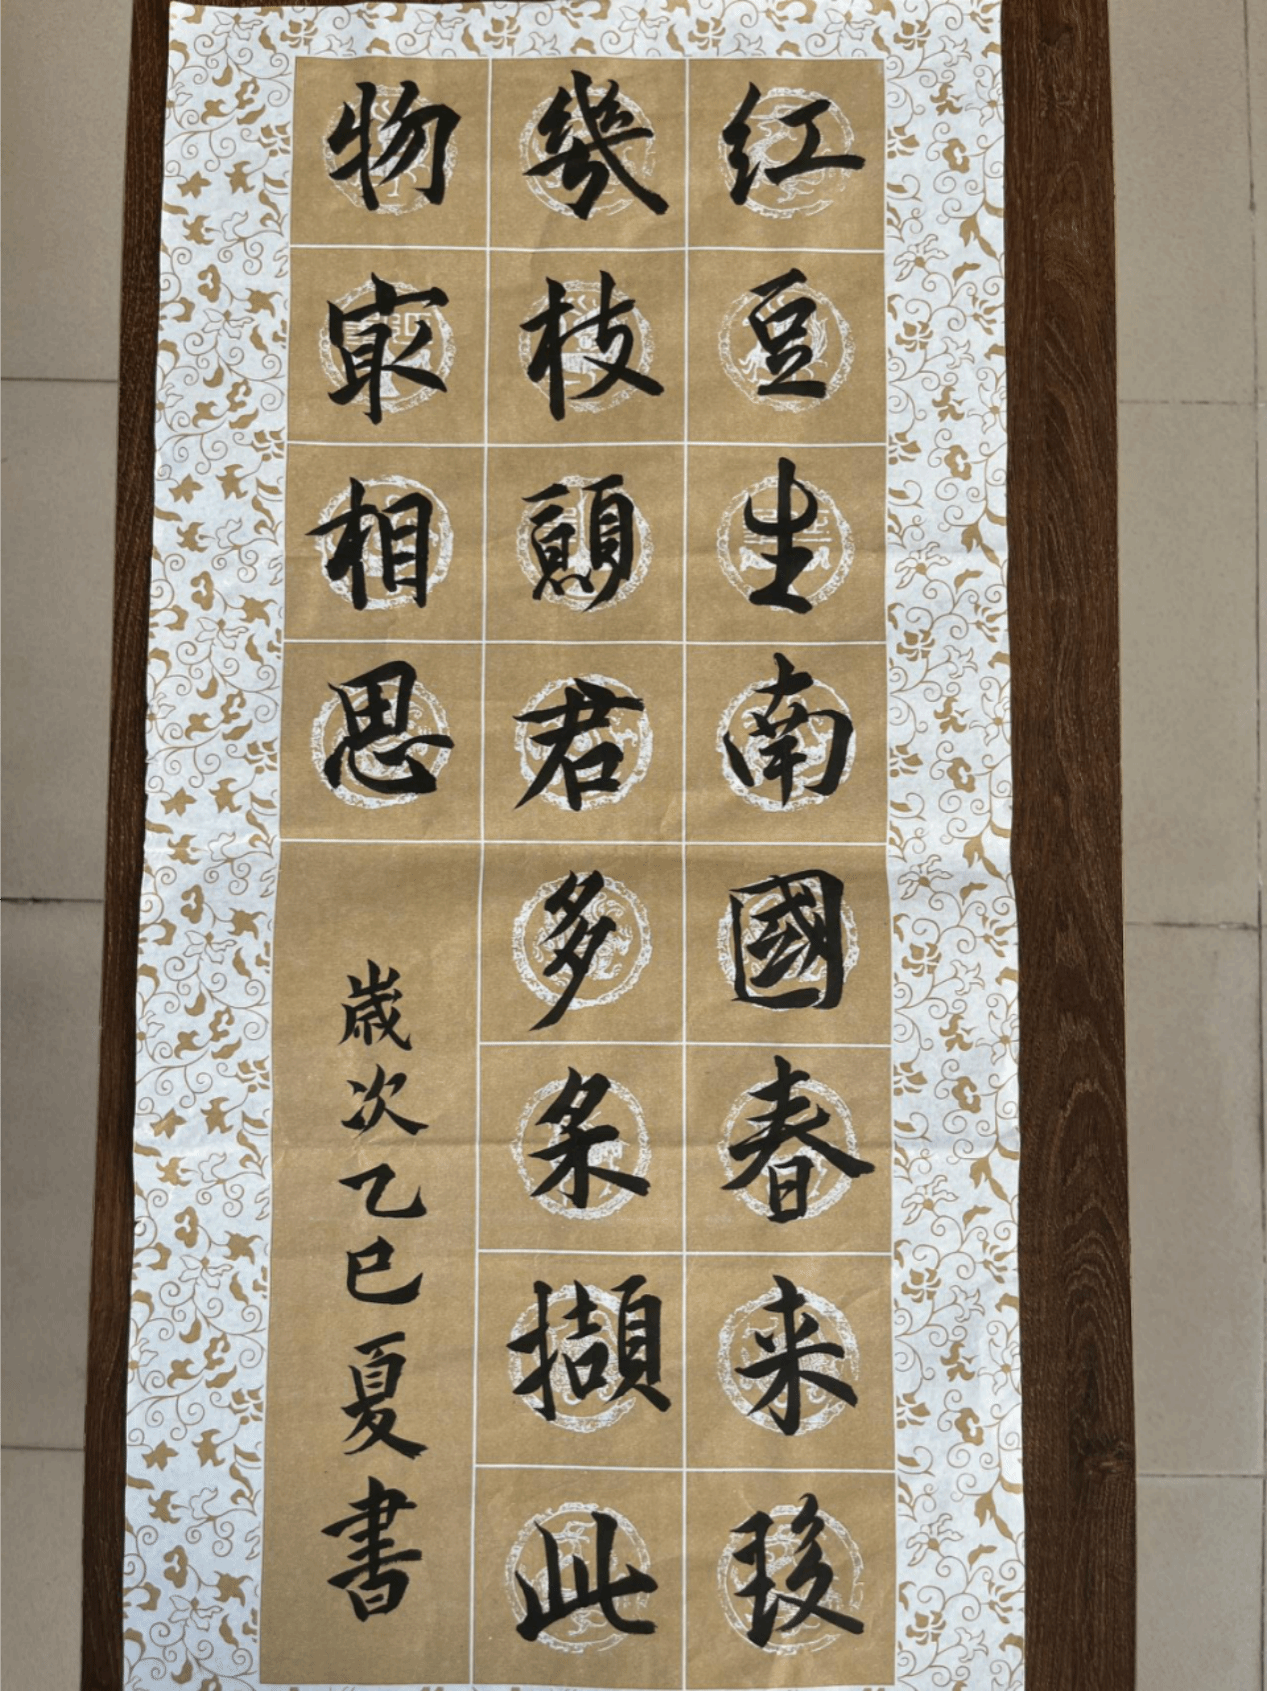 红豆生南國春来發
幾枝願君多采擷此
物最相思
歲次乙巳夏書